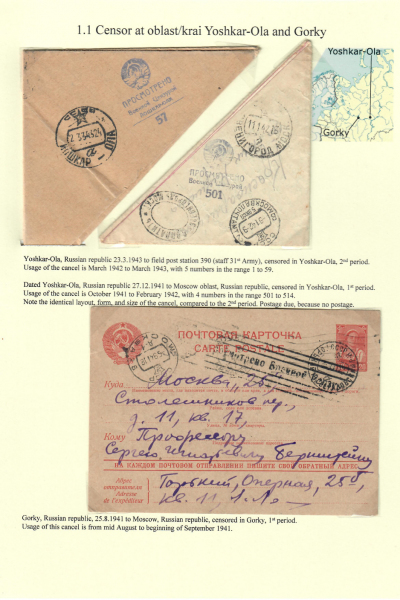 1.1 Censor at oblast/krai Yoshkar-Ola and Gorky
Yoshkar-Ola
Gorky
ПРОСМОТРЕНО
Военной Цензурой
57
ПРОСМОТРЕНО
Военной Цензурой
501
Yoshkar-Ola, Russian republic 23.3.1943 to field post station 390 (staff 31st Army), censored in Yoshkar-Ola, 2nd period.
Usage of the cancel is March 1942 to March 1943, with 5 numbers in the range 1 to 59.
Dated Yoshkar-Ola, Russian republic 27.12.1941 to Moscow oblast, Russian republic, censored in Yoshkar-Ola, 1st period.
Usage of the cancel is October 1941 to February 1942, with 4 numbers in the range 501 to 514.
Note the identical layout, form, and size of the cancel, compared to the 2nd period. Postage due, because no postage.
ПОЧТОВАЯ КАРТОЧКА
CARTE POSTALE
Куда Москва, 25
Столешников пер.,
д. 11, кв. 17,
Кому Профессору
Сергею Игнатьевичу Бернштейну
НА КАЖДОМ ПОЧТОВОМ ОТПРАВЛЕНИИ ПИШИТЕ СВОЙ ОБРАТНЫЙ АДРЕС
Адрес отправителя
Adresse de l'expéditeur
Горький, Оперная, 25
кв. 11,
Gorky, Russian republic, 25.8.1941 to Moscow, Russian republic, censored in Gorky, 1st period.
Usage of this cancel is from mid August to beginning of September 1941.